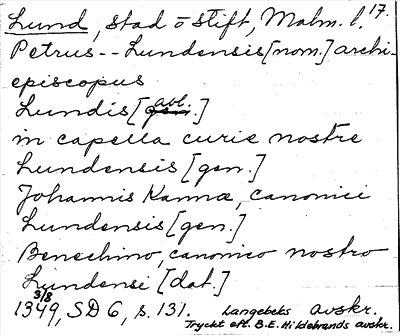 Lund, stad o stift, Malm. l. 17.
Petrus -- Lundensis [nom.] archi-
episcopus
Lundis [abl.]
in capella curie nostre
Lundensis [gen.]
Johannis Kannæ, canonici
Lundensis [gen.]
Benechino, canonico nostro
Lundensi [dat.]
1349 3/8, SD 6, s. 131. Langebeks avskr.
Tryckt eft. B.E. Hildebrands avskr.